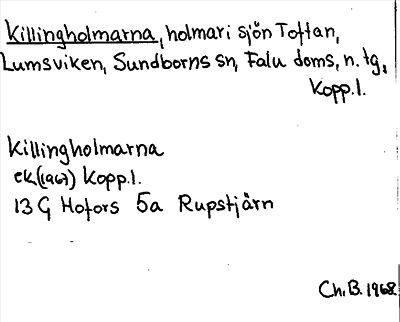 Killingholmarna, holmar i sjön Toftan,
Lumsviken, Sundborns sn, Falu doms. n. tg,
Kopp.l.
Killingholmarna
ek (1967) Kopp.l.
13 G Hofors 5a Rupstjärn
Ch. B. 1968